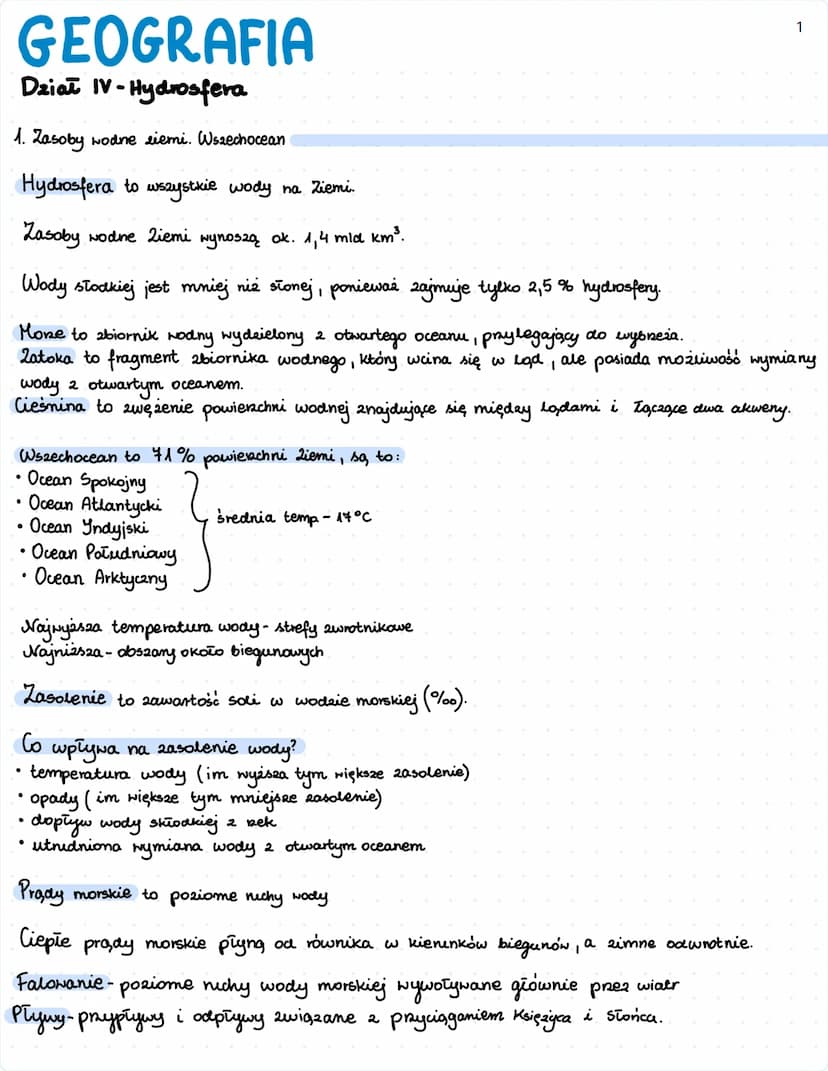 1
GEOGRAFIA
Dział IV - Hydrosfera
1. Zasoby wodne ziemi. Wszechocean
Hydrosfera to wszystkie wody na Ziemi.
Zasoby wodne Ziemi wynoszą ok. 1,4 mld km³.
Wody słodkiej jest mniej niż słonej, ponieważ zajmuje tylko 2,5 % hydrosfery.
Morze to zbiornik wodny wydzielony z otwartego oceanu, przylegający do wybrzeża.
Zatoka to fragment zbiornika wodnego, który wcina się w ląd, ale posiada możliwość wymiany
wody z otwartym oceanem.
Cieśnina to zwężenie powierzchni wodnej znajdujące się między lądami i łączące dwa akweny.
Wszechocean to 71% powierzchni Ziemi, są to:
• Ocean Spokojny
• Ocean Atlantycki
• Ocean Indyjski
• Ocean Południowy
• Ocean Arktyczny
średnia temp - 17°C
Najwyższa temperatura wody - strefy zwrotnikowe
Najniższa - obszary około biegunowych
Zasolenie to zawartość soli w wodzie morskiej (‰).
Co wpływa na zasolenie wody?
• temperatura wody (im wyższa tym większe zasolenie)
• opady (im większe tym mniejsze zasolenie)
• dopływ wody skłodkiej z rzek
• utrudniona wymiana wody z otwartym oceanem
Prądy morskie to poziome ruchy wody
Ciepłe prądy morskie płyną od równika w kierunków biegunów, a zimne odwrotnie.
Falowanie - poziome ruchy wody morskiej wywoływane głównie przez wiatr
Pływy - przypływy i odpływy związane z przyciąganiem Księżyca i Słońca.